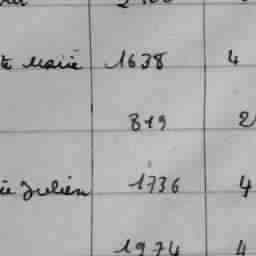 te Marie 1638 4
819 2
ie Julien 1736 4
1974 4